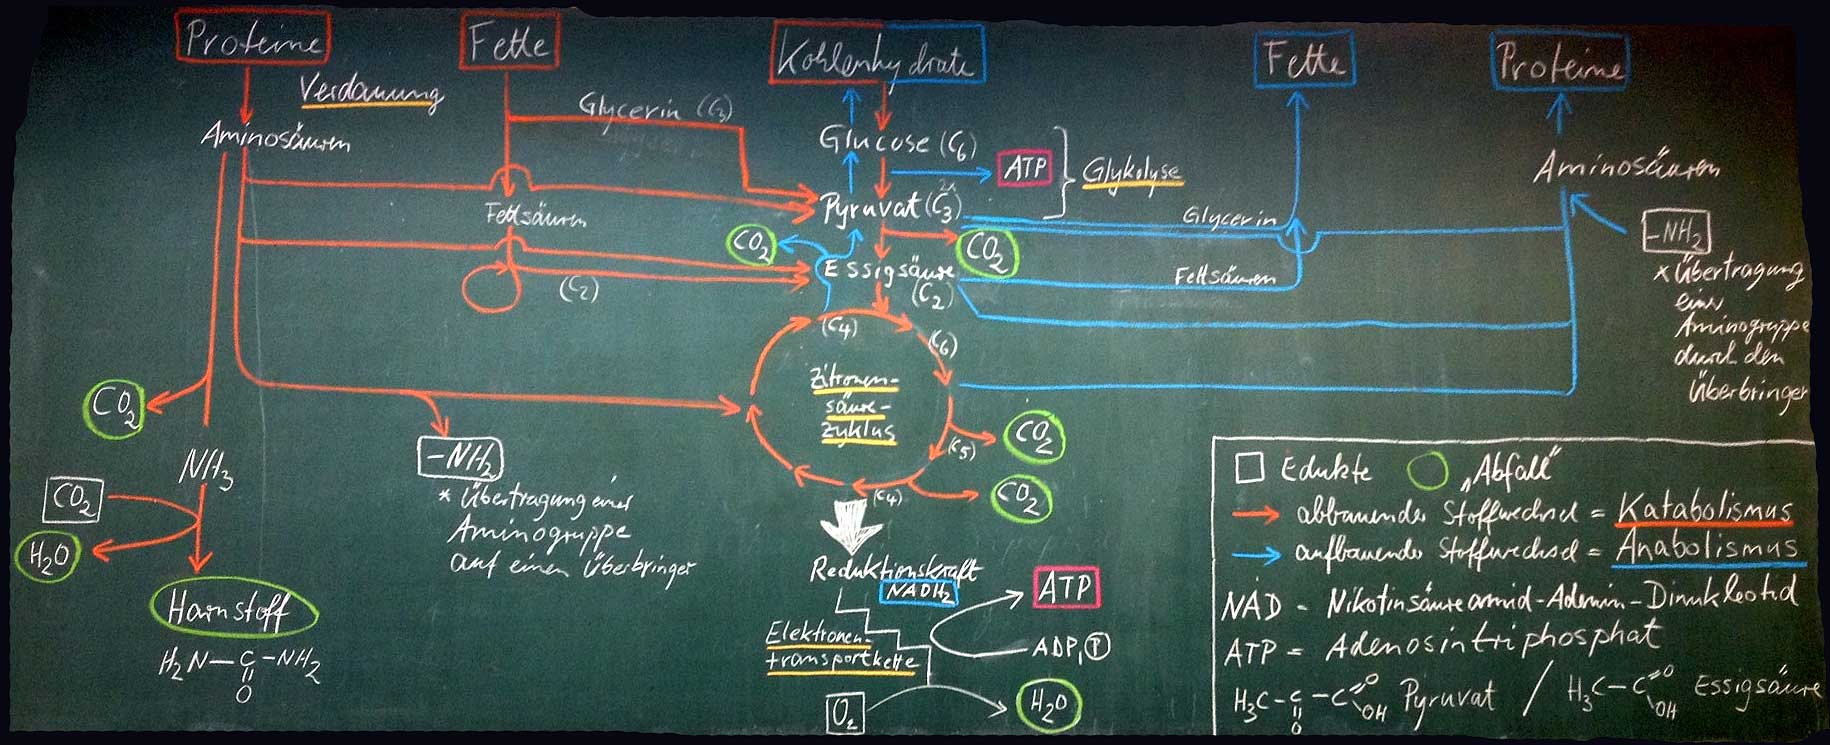 Proteine
Fette
Kohlenhydrate
Fette
Proteine
Verdauung
Glycerin (C3)
Aminosäuren
Glucose (C6)
ATP
Glykolyse
Aminosäuren
Fettsäuren
Pyruvat (C3)
2x
Glycerin
-NH2
* Übertragung
einer
Aminogruppe
durch den
Überbringer
CO2
CO2
Essigsäure
(C2)
Fettsäuren
(C2)
(C4)
(C6)
Zitronen-
säure-
zyklus
CO2
CO2
(C5)
(C4)
CO2
-NH2
* Übertragung einer
Aminogruppe
auf einen Überbringer
NH3
CO2
H2O
Harnstoff
H2N-C-NH2
O
Reduktionskraft
NADH2
ATP
Elektronen-
transportkette
ADP, P
O2
H2O
Edukte
„Abfall“
abbauender Stoffwechsel = Katabolismus
aufbauender Stoffwechsel = Anabolismus
NAD = Nikotinsäureamid-Adenin-Dinukleotid
ATP = Adenosintriphosphat
H3C-C-C=O OH Pyruvat / H3C-C=O OH Essigsäure
O